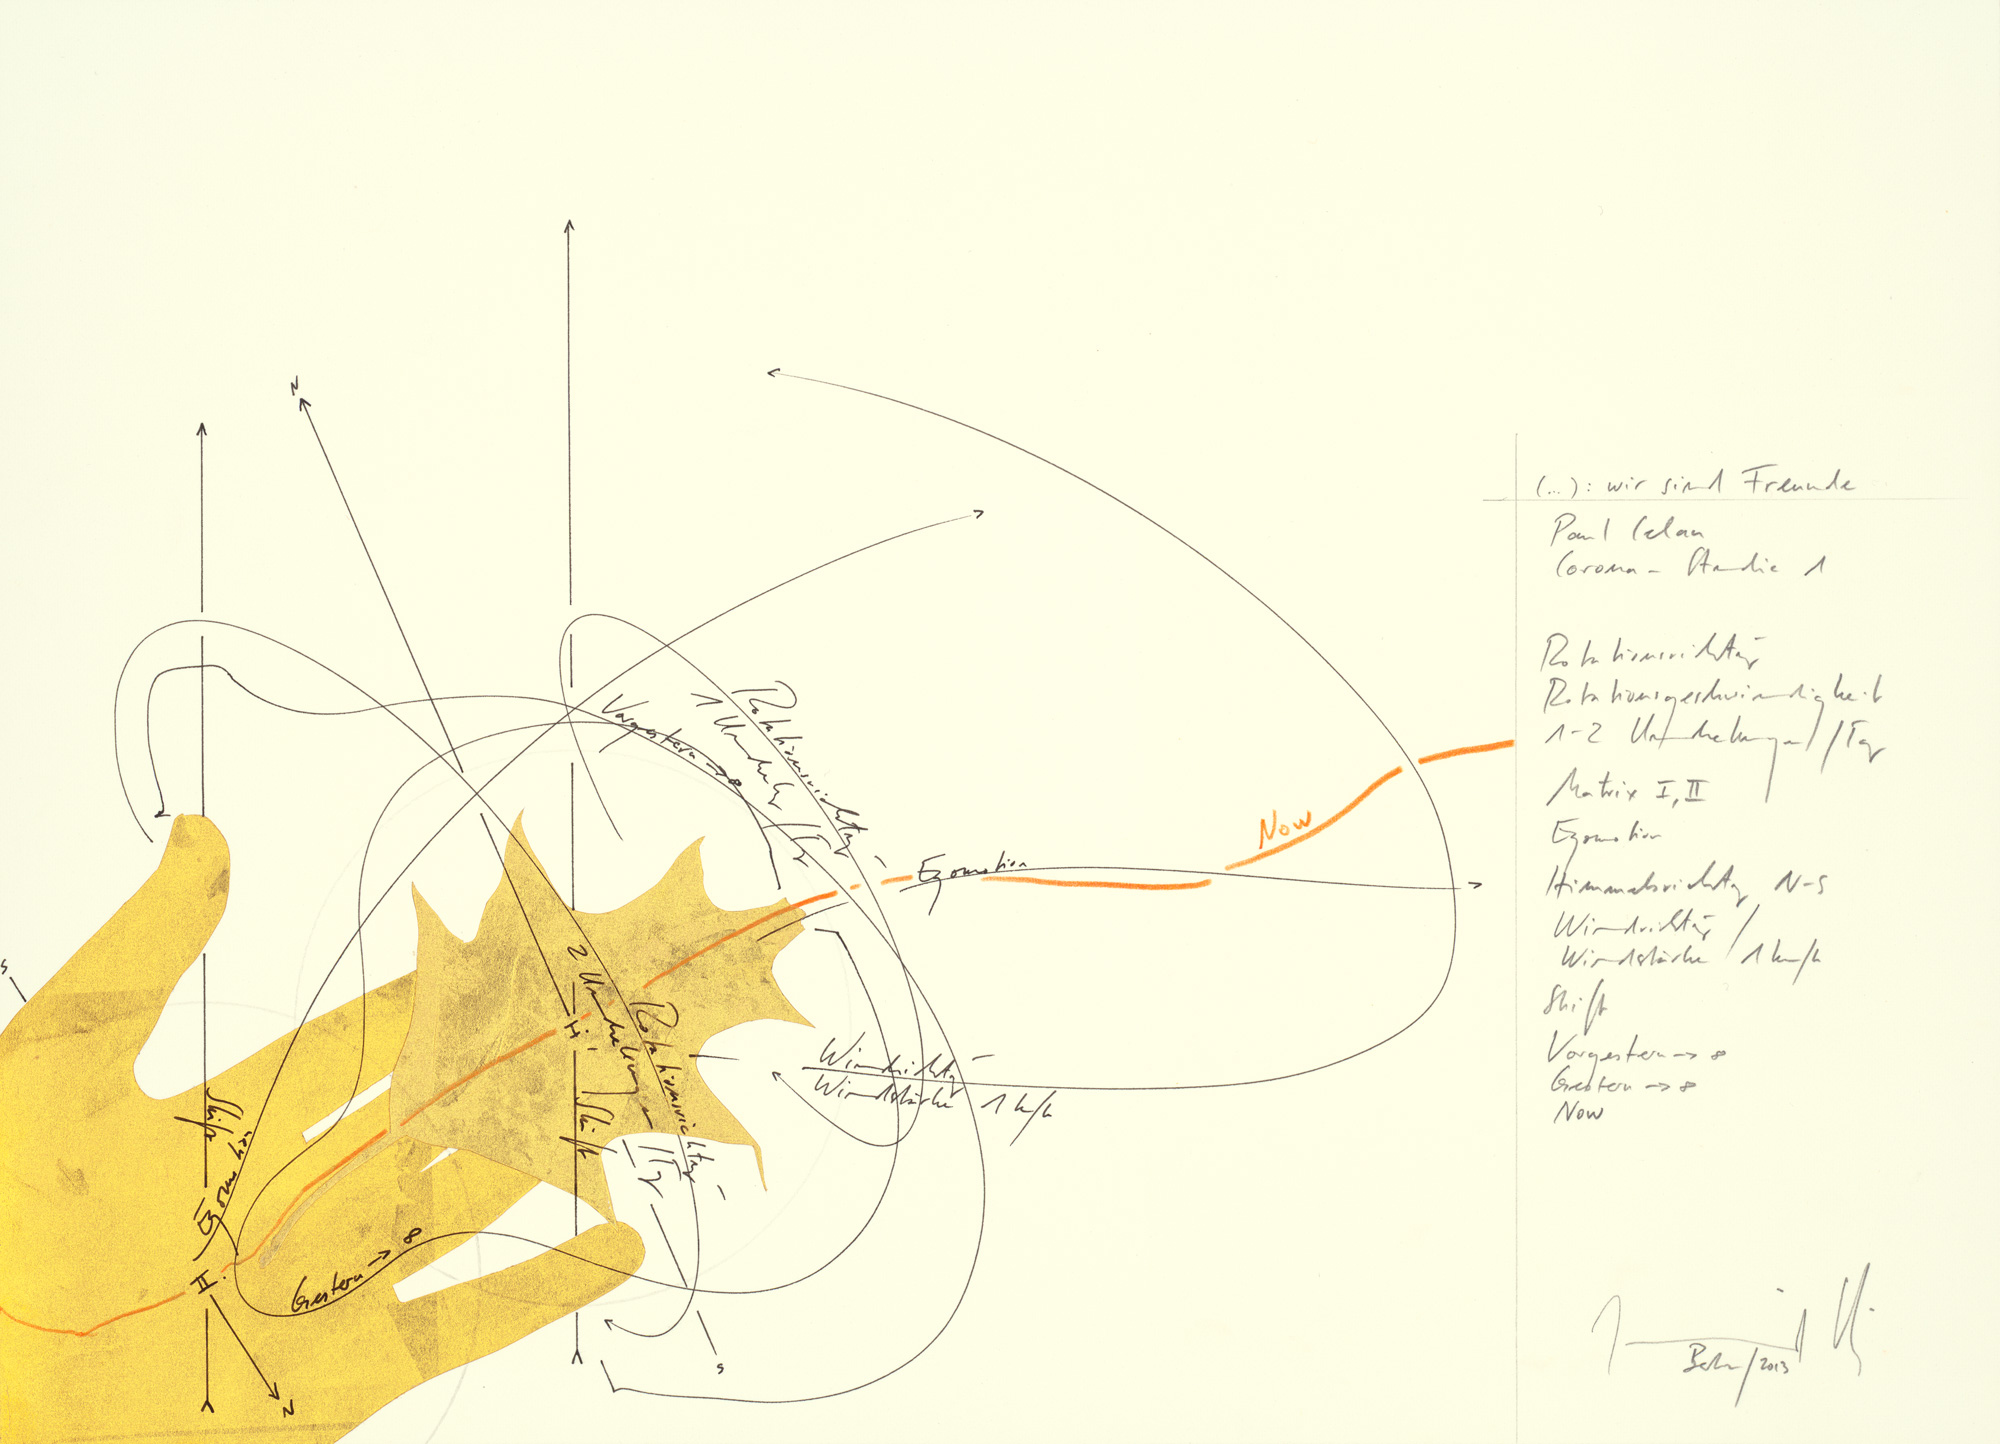 N
Vorgestern → ∞
Rotationsrichtung
1 Umdrehung / Tag
Now
Egomotion
S
2 Umdrehungen / Tag
Rotationsrichtung
I.
Shift
Windrichtung
Windstärke 1 km/h
Shift
Egomotion
II.
Gestern → ∞
N
S
(...): wir sind Freunde
Paul Celan
Corona - Studie 1
Rotationsrichtung
Rotationsgeschwindigkeit
1-2 Umdrehungen / Tag
Matrix I, II
Egomotion
Himmelsrichtung N-S
Windrichtung /
Windstärke 1 km/h
Shift
Vorgestern → ∞
Gestern → ∞
Now
Berlin / 2013